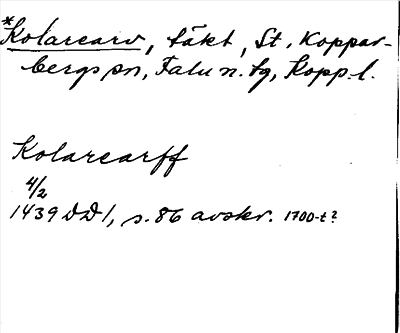 *Kolarearv, täkt, St. Koppar-
bergs sn, Falu n. bg, Kopp. l.
Kolarearff
4/2
1439 DD 1, s. 86 avskr. 1700-t?